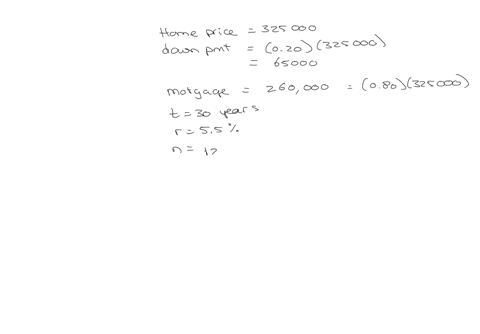 Home price = 325000
down pmt = (0.20)(325000)
= 65000
motgage = 260,000 = (0.80)(325000)
t = 30 years
r = 5.5%
n = 12